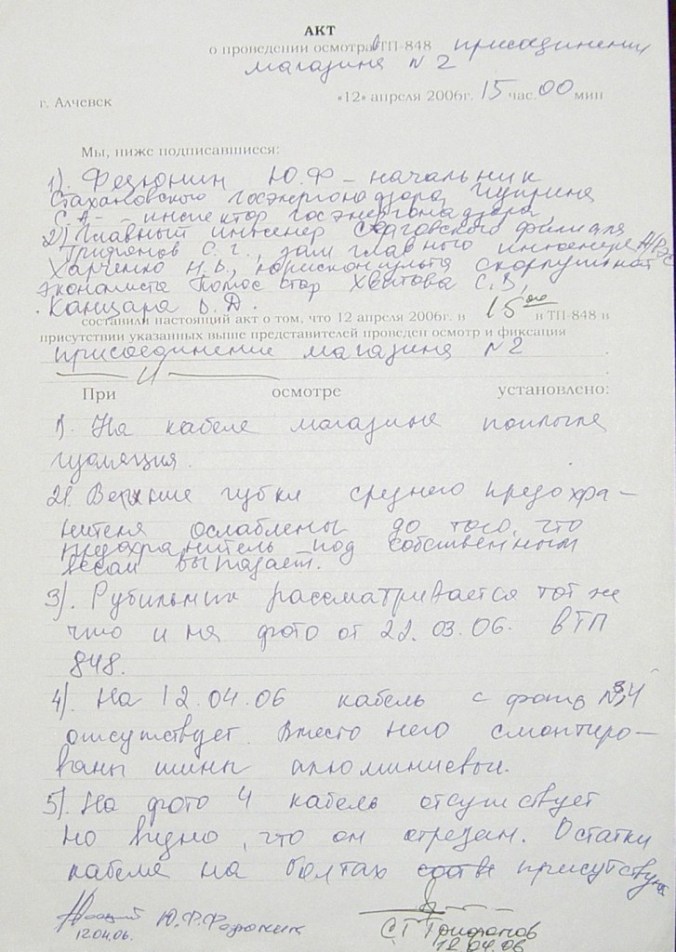 АКТ
о проведении осмотра в ТП-848 присоединения
магазина N 2
г. Алчевск «12» апреля 2006г. 15 час. 00 мин
Мы, ниже подписавшиеся:
1). Федюнин Ю.Ф – начальник
Стахановского госэнергонадзора,
С.А. – инспектор госэнергонадзора,
2) Главный инженер филиала
Трифонов С.Г., зам главного инженера
Харченко Н.В., юрисконсульта
экономиста Хвитова С.В,
Канцара В.Д.
составили настоящий акт о том, что 12 апреля 2006г. в 15 00 в ТП-848 в
присутствии указанных выше представителей проведен осмотр и фиксация
присоединение магазина N 2
При осмотре установлено:
1). На кабеле магазина поплыла
изоляция.
2). Верхние губки среднего предохра–
нителя ослаблены до того, что
предохранитель под собственным
весом выпадает.
3). Рубильник рассматривается тот же
что и на фото от 22.03.06. в ТП
848.
4). На 12.04.06 кабель с фото N 3,4
отсутствует. Вместо него смонтиро–
ваны шины алюминиевые.
5). На фото 4 кабель отсутствует
но видно, что он отрезан. Остатки
кабеля на болтах присутствуют
Ю.Ф.Федюнин
12.04.06.
С.Г Трифонов
12.04.06